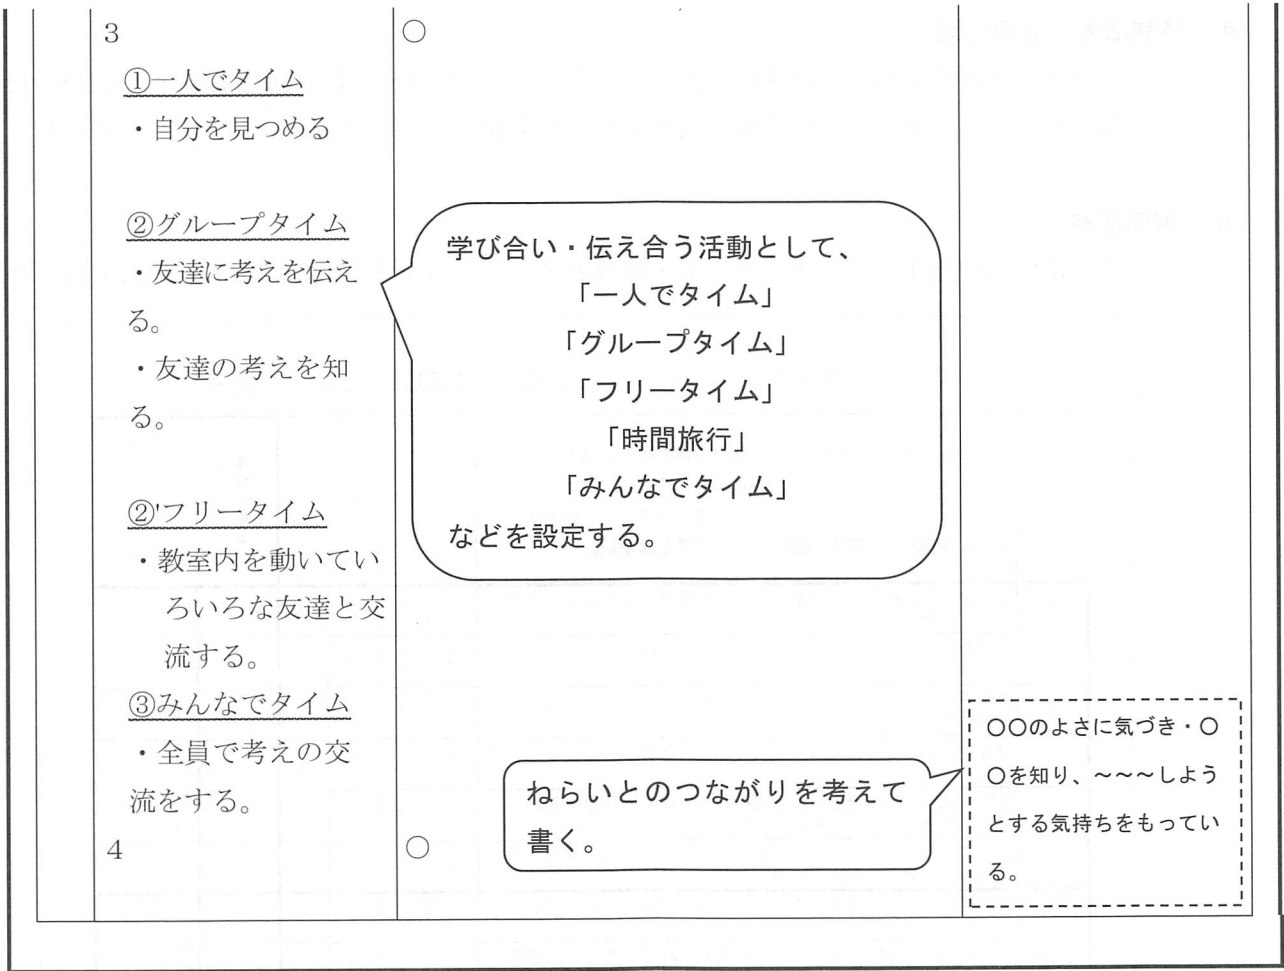 3
①一人でタイム
・自分を見つめる
②グループタイム
・友達に考えを伝え
る。
・友達の考えを知
る。
②'フリータイム
・教室内を動いてい
ろいろな友達と交
流する。
③みんなでタイム
・全員で考えの交
流をする。
4
○
学び合い・伝え合う活動として、
「一人でタイム」
「グループタイム」
「フリータイム」
「時間旅行」
「みんなでタイム」
などを設定する。
ねらいとのつながりを考えて
書く。
○
○○のよさに気づき・○
○を知り、～～～しよう
とする気持ちをもってい
る。